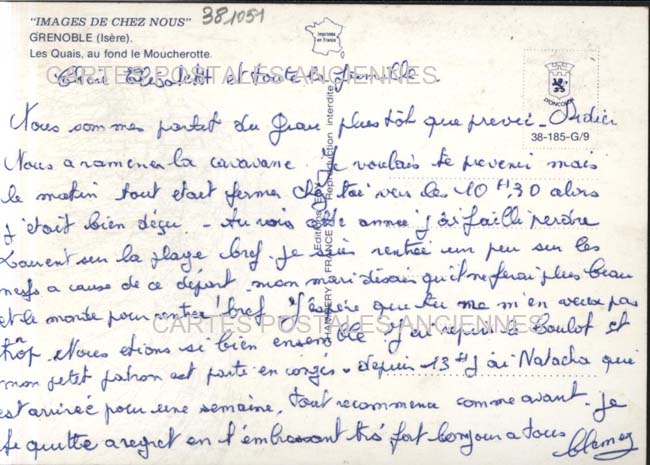 "IMAGES DE CHEZ NOUS"
381051
GRENOBLE (Isère).
Les Quais, au fond le Moucherotte.
Imprimée en France
IRONCOLOR
38-185-G/9
CARTES POSTALES ANCIENNES
Cheri Elisabeth et toute la famille.
Nous sommes partit du Grau plus tôt que prevu - Didier
Nous a ramener la caravane. Je voulais te prevenir mais
le matin tout etait fermer chez toi vers les 10 H,30 alors
j'etait bien déçu. - Au vois cette année j'ai failli perdre
Laurent sur la plage bref. je suis rentrée un peu sur les
nerfs a cause de ce départ. mon mari disais qu'il ne ferai plus beau
et le monde pour rentrer! bref j'espère que tu ne m'en veux pas
trop. Nous etions si bien ensemble j'ai repris le boulot et
mon petit patron est partie en congés. depuis 13 H j'ai Natacha qui
est arrivée pour une semaine. tout recommence comme avant. je
te quitte a regret en t'embrassant très fort bonjour a tous
CARTES POSTALES ANCIENNES
Editions
CHAMBERY - FRANCE
Reproduction interdite